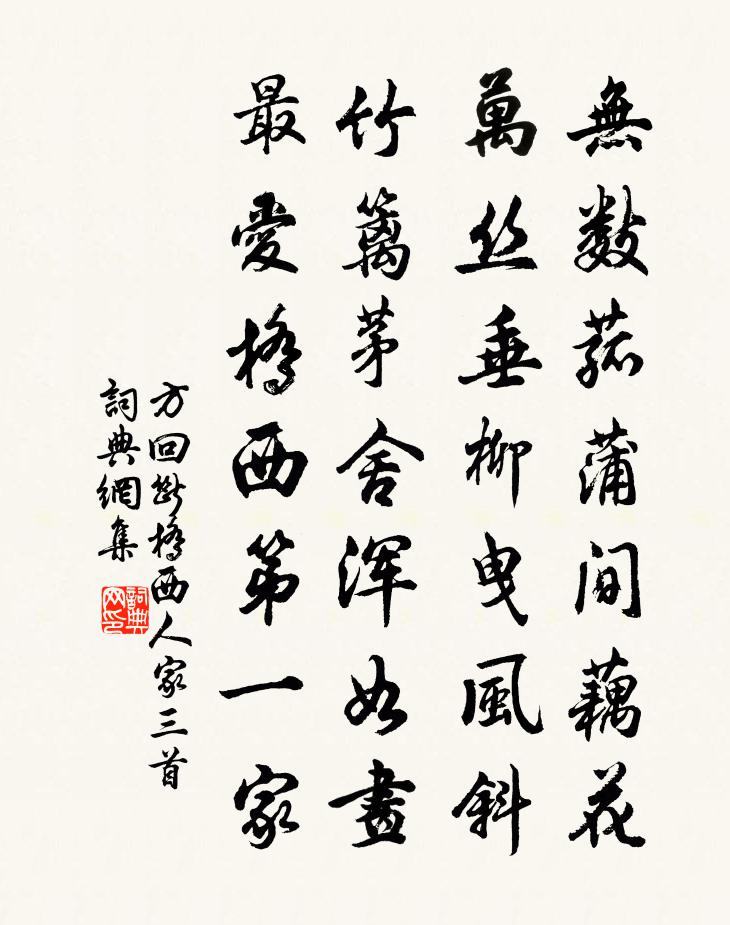 無數菰蒲间藕花
萬丝垂柳曳風斜
竹籬茅舍渾如畫
最愛橋西第一家
方回斷橋西人家三首
詞典網集
詞典网印